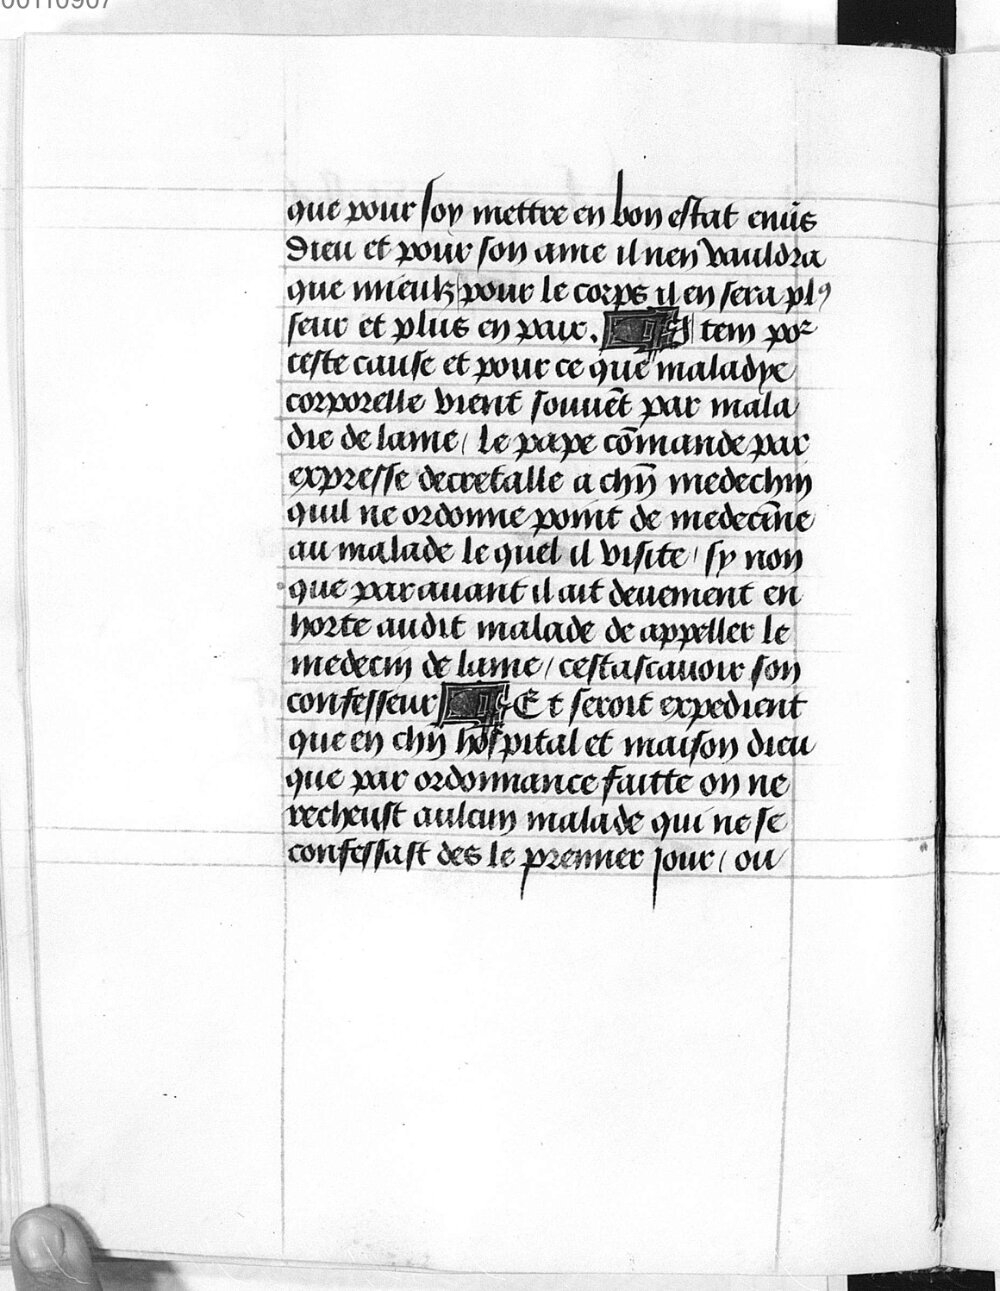 00110907
que pour soy mettre en bon estat enũs
Dieu et pour son ame il nen vauldra
que mieulz pour le corps il en sera plꝰ
seur et plus en paix. Item poꝛ
ceste cause et pour ce que maladye
corporelle vient souuẽt par mala
die de lame / le pape cõmande par
expresse decretalle a chũ medechin
quil ne ordonne point de medecĩne
au malade le quel il visite / sy non
que par auant il ait deuement en
horte audit malade de appeller le
medecin de lame / cestascauoir son
confesseur Et seroit expedient
que en chũ hospital et maison dieu
que par ordonnance faitte on ne
recheust aulcun malade qui ne se
confessast des le premier jour / ou